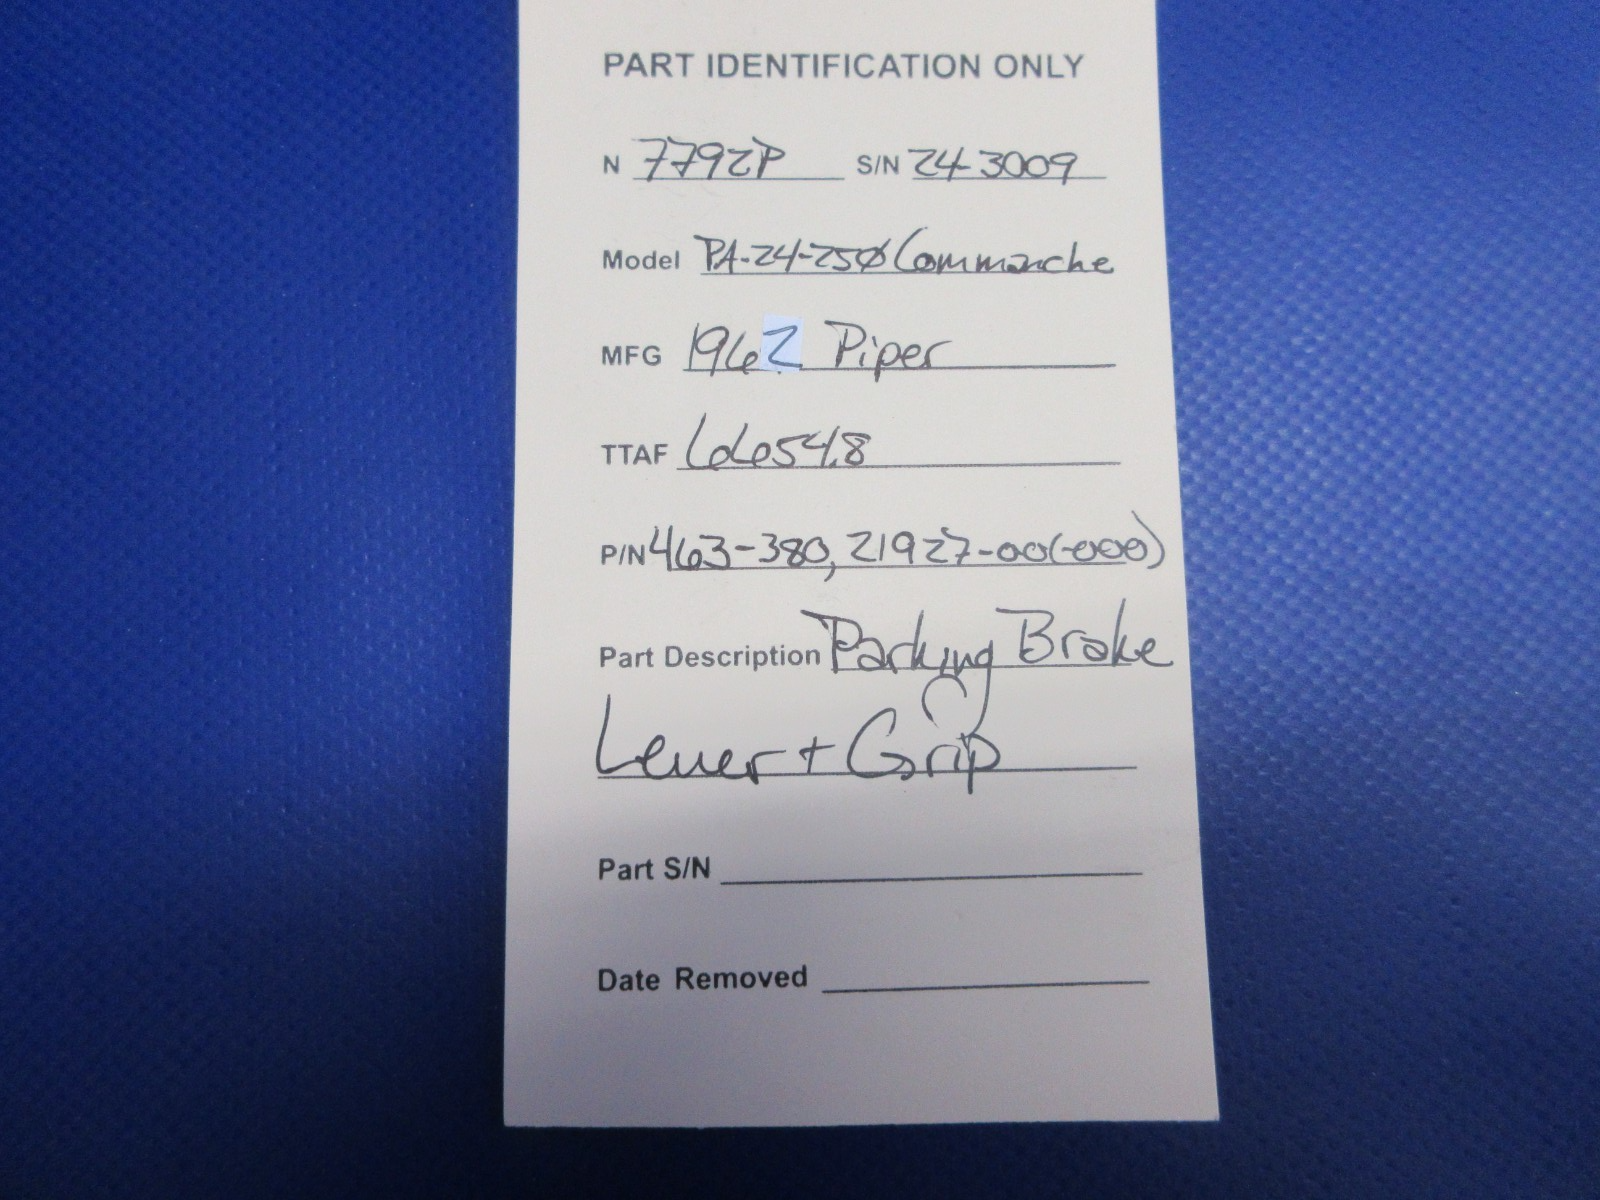 PART IDENTIFICATION ONLY
N 7792P S/N 24-3009
Model PA-24-250 Commanche
MFG 1962 Piper
TTAF 6654.8
P/N 463-380, 21927-00(-000)
Part Description Parking Brake
Lever + Grip
Part S/N
Date Removed